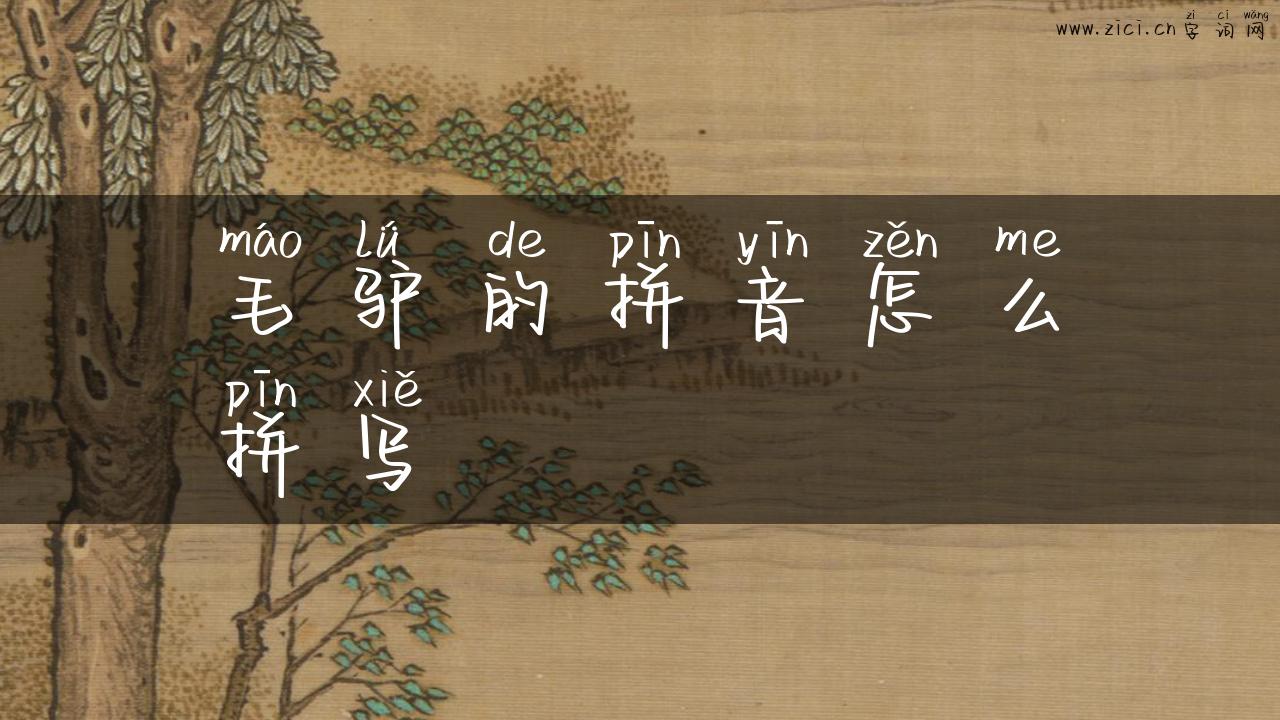 zì cí wǎng
www.zici.cn 字 词 网
máo lǘ de pīn yīn zěn me
毛 驴 的 拼 音 怎 么
pīn xiě
拼 写